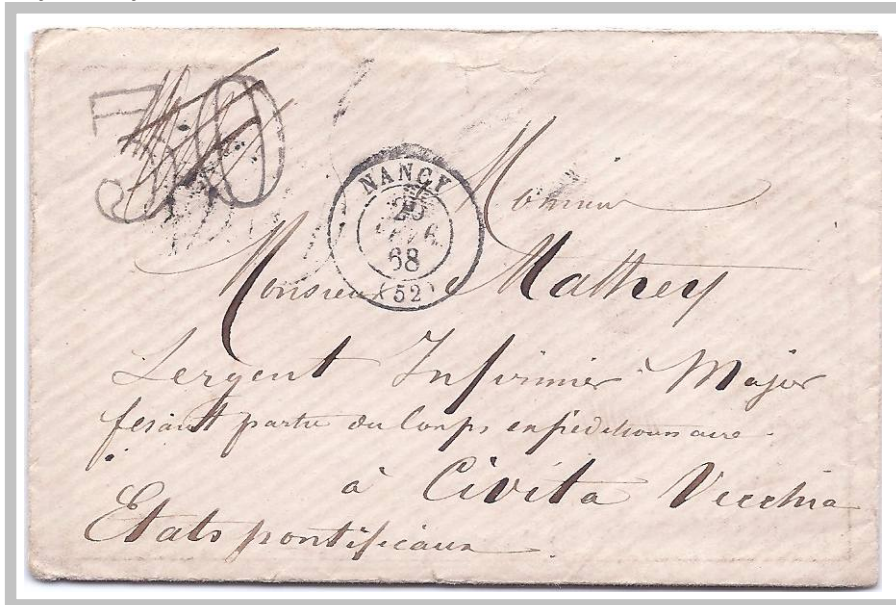 50
NANCY
68
(52)
Monsieur
Monsieur Mathey
Sergent Infirmier Major
fesant partie du Corps expéditionnaire
à Civita Vecchia
Etats pontificaux